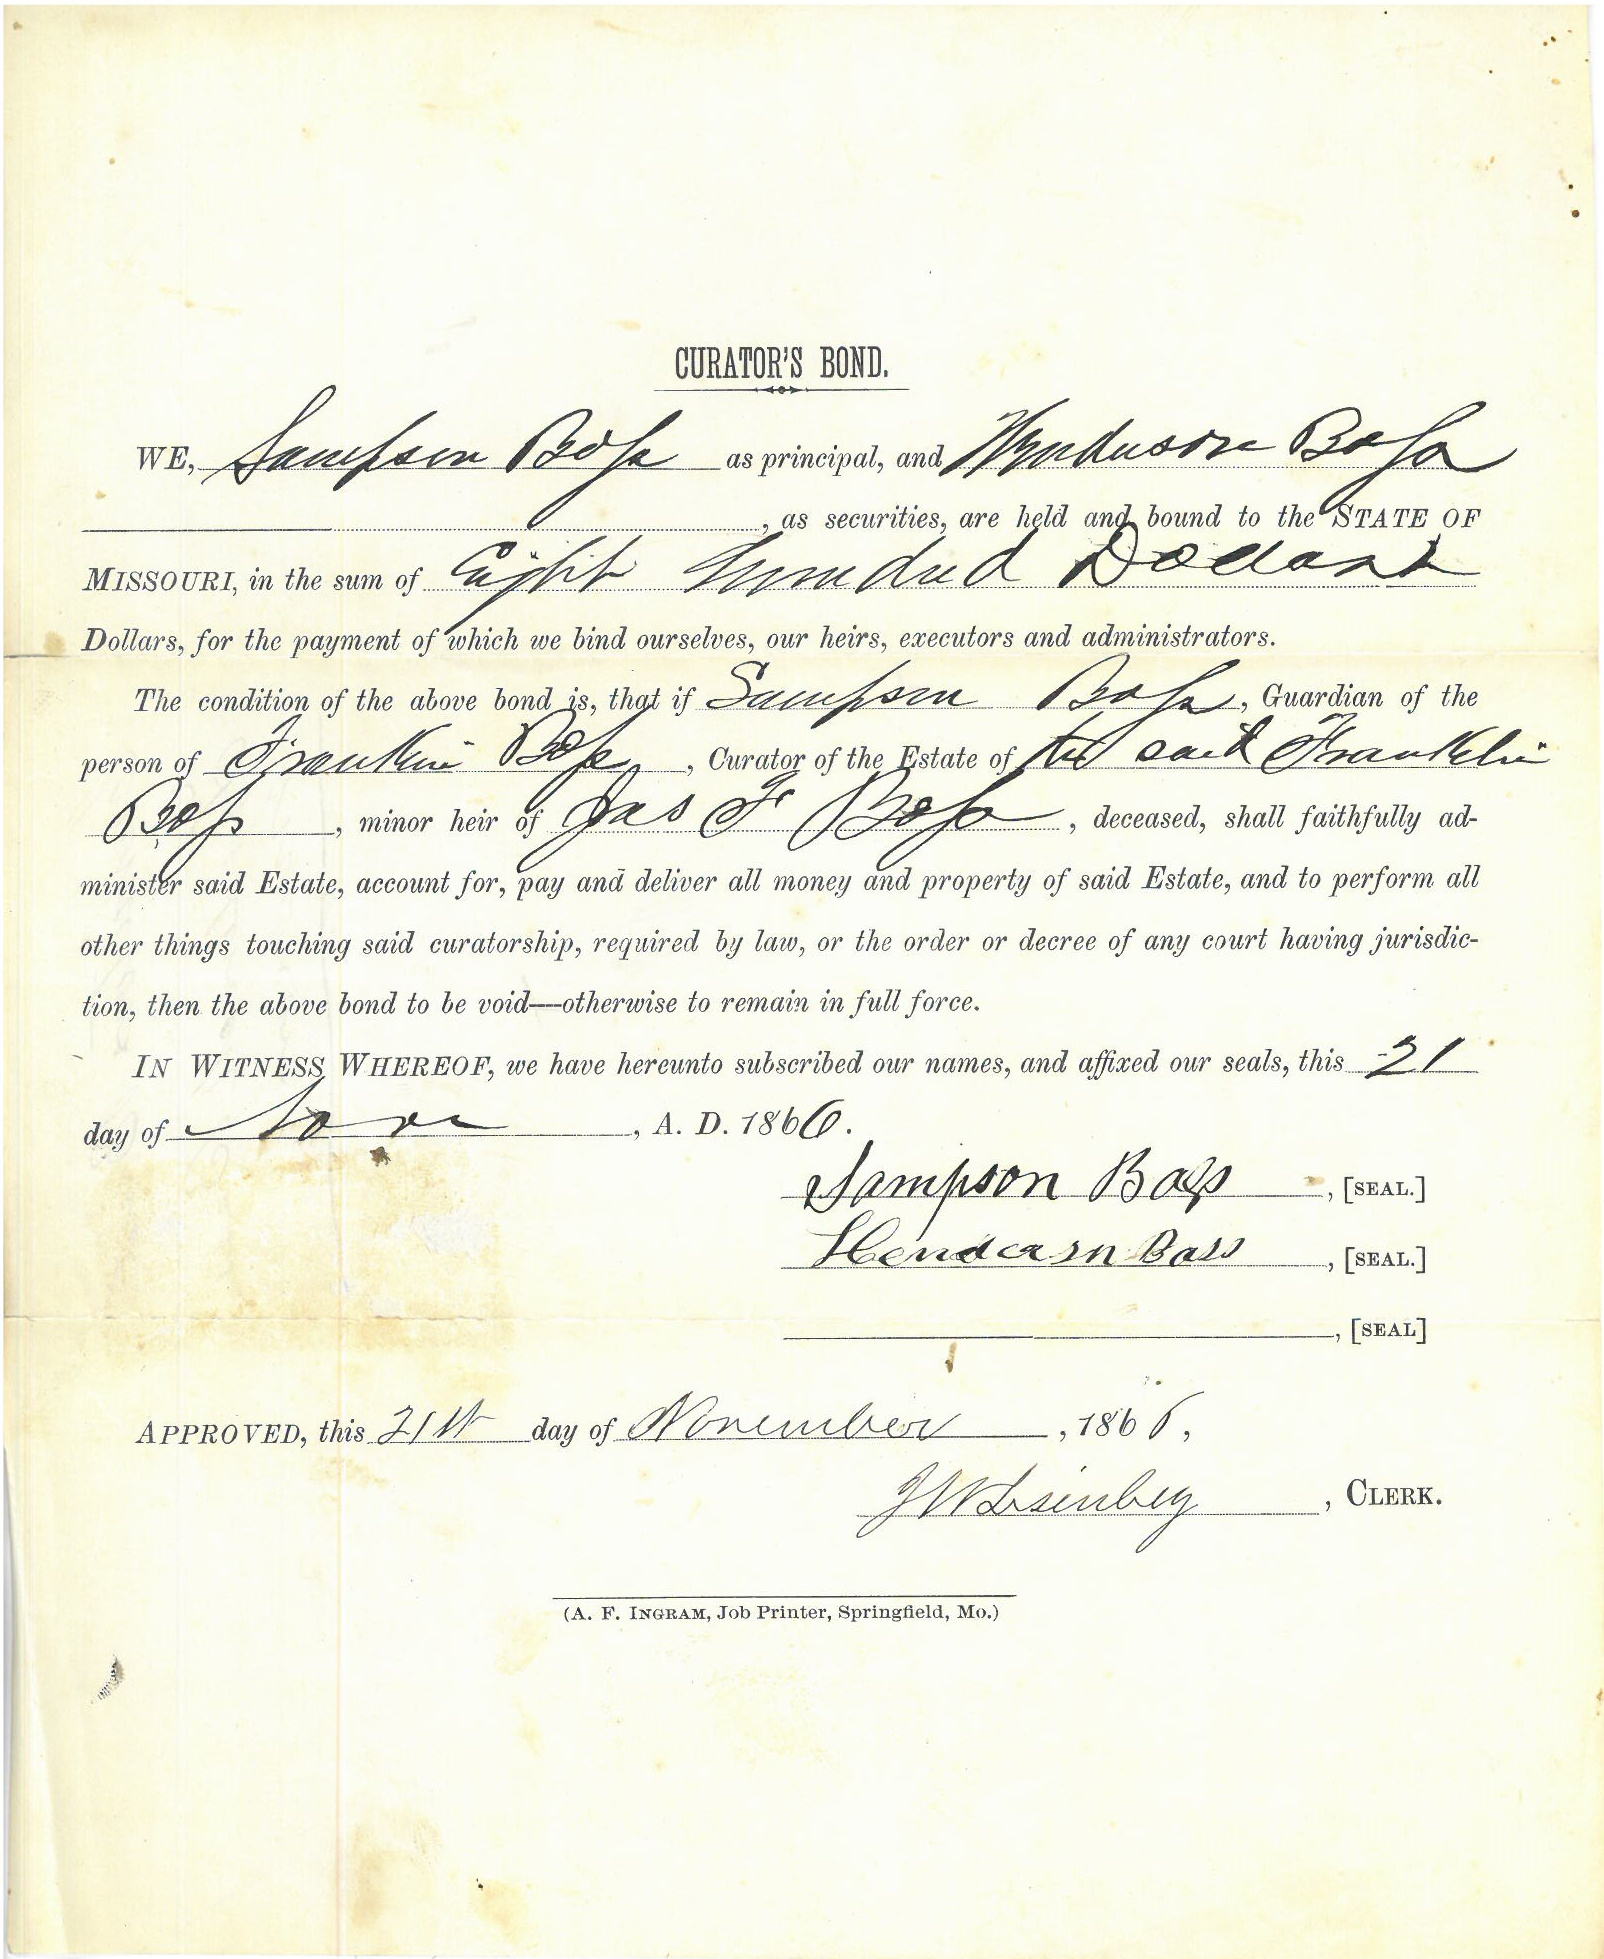 CURATOR'S BOND.
WE, Sampson Bass as principal, and Henderson Bass
, as securities, are held and bound to the STATE OF
MISSOURI, in the sum of Eight Hundred Dollars
Dollars, for the payment of which we bind ourselves, our heirs, executors and administrators.
The condition of the above bond is, that if Sampson Bass, Guardian of the
person of Franklin Bass, Curator of the Estate of the said Franklin
Bass, minor heir of Jas F Bass, deceased, shall faithfully ad-
minister said Estate, account for, pay and deliver all money and property of said Estate, and to perform all
other things touching said curatorship, required by law, or the order or decree of any court having jurisdic-
tion, then the above bond to be void—otherwise to remain in full force.
IN WITNESS WHEREOF, we have hereunto subscribed our names, and affixed our seals, this 21
day of Nov, A. D. 1866.
Sampson Bass, [SEAL.]
Henderson Bass, [SEAL.]
, [SEAL]
APPROVED, this 21st day of November, 1866,
J W Lisenbey, CLERK.
(A. F. INGRAM, Job Printer, Springfield, Mo.)